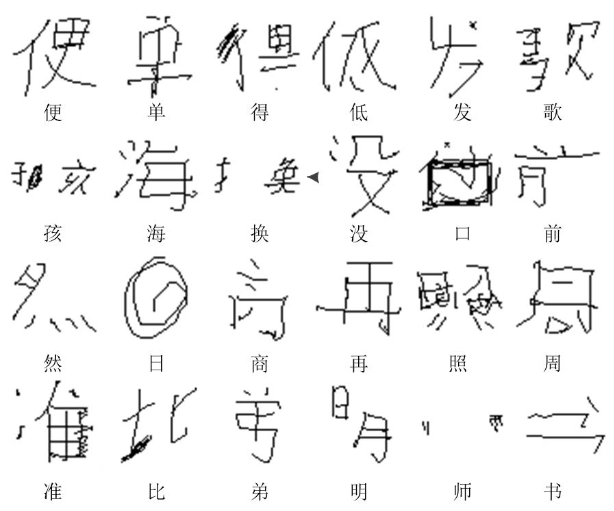 便 单 得 低 发 歌
孩 海 换 没 口 前
然 日 商 再 照 周
准 比 弟 明 师 书